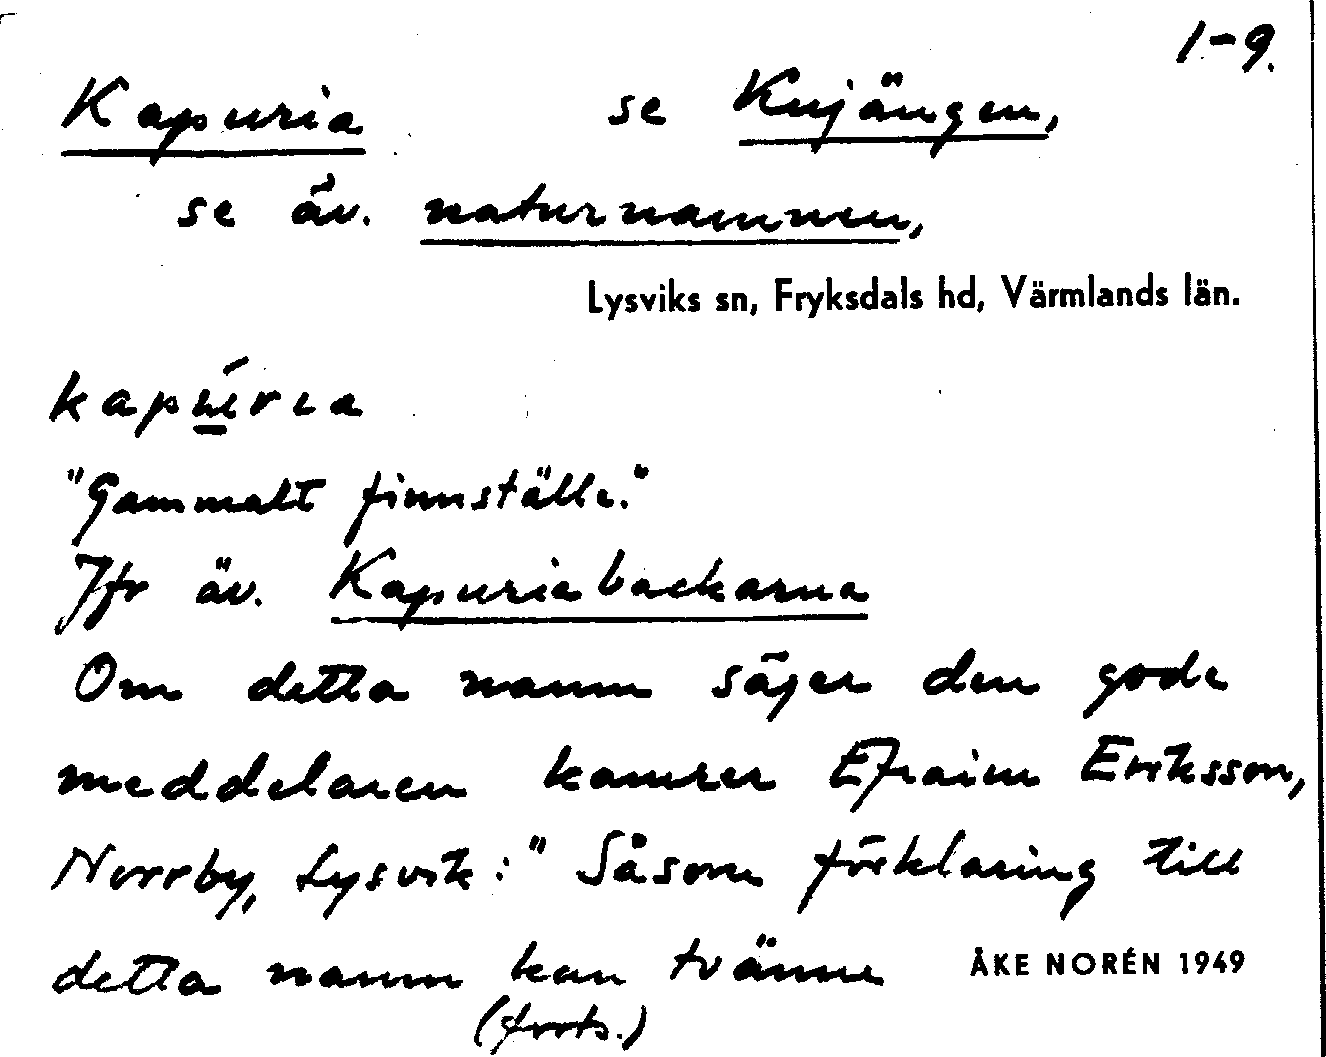 1-9.
Kapuria se Knjängen,
se äv. naturnamnen,
Lysviks sn, Fryksdals hd, Värmlands län.
kapúria
"Gammalt finnställe."
Jfr äv. Kapuriabackarna
Om detta namn säger den gode
meddelaren kamrer Efraim Eriksson,
Norrby, Lysvik: "Såsom förklaring till
detta namn kan tvänne
ÅKE NORÉN 1949
(forts.)